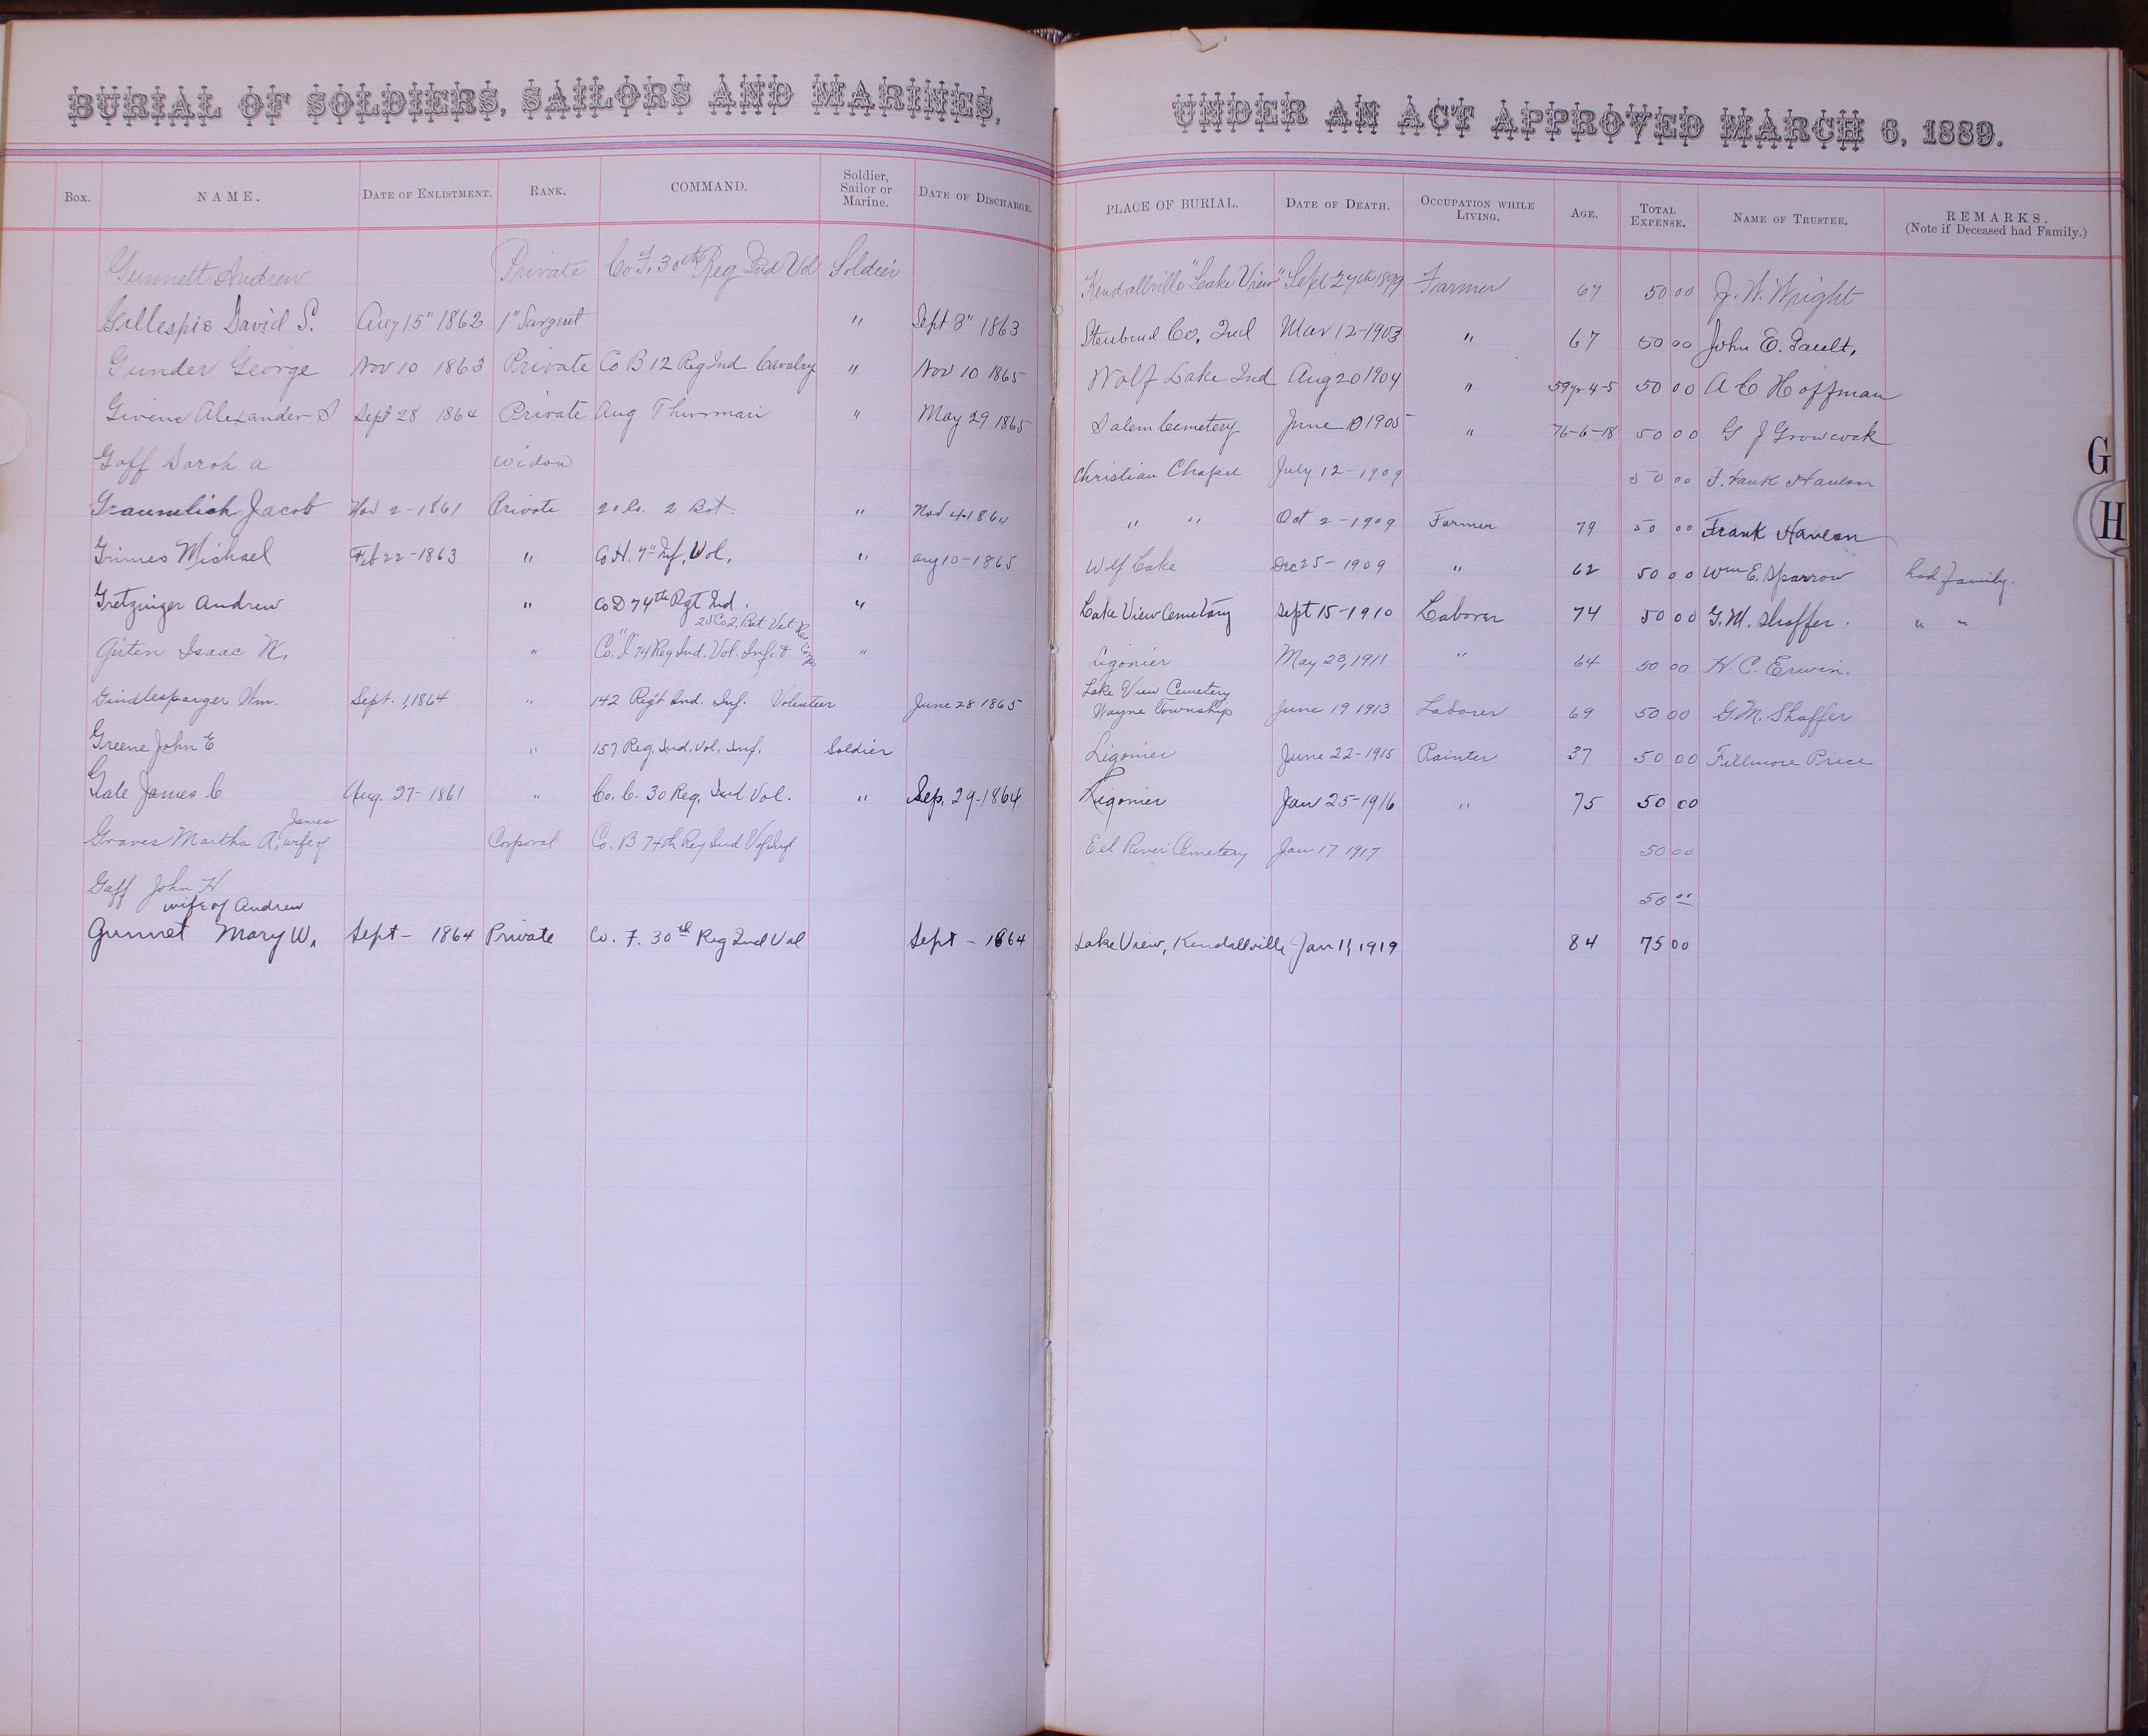 BURIAL OF SOLDIERS, SAILORS AND MARINES, UNDER AN ACT APPROVED MARCH 6, 1889.
Box. NAME. DATE OF ENLISTMENT. RANK. COMMAND. Soldier, Sailor or Marine. DATE OF DISCHARGE. PLACE OF BURIAL. DATE OF DEATH. OCCUPATION WHILE LIVING. AGE. TOTAL EXPENSE. NAME OF TRUSTEE. REMARKS. (Note if Deceased had Family.)
Gunnett Andrew Private Co F, 30th Reg Ind Vol Soldier Kendallville "Lake View" Sept 27th 1899 Farmer 67 50 00 J. W. Wright
Gillespie David S. Aug 15" 1862 1" Sargent " Sept 3" 1863 Steubend Co, Ind Mar 12-1903 " 67 50 00 John E. Gault,
Gunder George Nov 10 1863 Private Co B 12 Reg Ind Cavalry " Nov 10 1865 Wolf Lake Ind Aug 20 1904 " 59yr 4-5 50 00 A C Hoffman
Givens Alexander S Sept 28 1864 Private Aug Thurman " May 29 1865 Salem Cemetery June 10 1905 " 76-6-18 50 00 G J Growcock
Goff Sarah a widow Christian Chapel July 12-1909 50 00 F. Frank Hanlon
Graumlich Jacob Nov 2-1861 Private 20 Co. 2 Bat. " Nov 4-1864 " " Oct 2-1909 Farmer 79 50 00 Frank Hanlon
Grimes Michael Feb 22-1863 " Co H. 7" Inf. Vol. " aug 10-1865 Wolf Lake Dec 25-1909 " 62 50 00 Wm E. Sparrow had family.
Gretzinger Andrew " Co D 74th Rgt Ind. " Lake View Cemetary Sept 15-1910 Laborer 74 50 00 G. M. Shaffer. " "
25 Co 2, Bat Vet Res Corps
Giten Isaac N. " Co. "I" 74 Reg Ind. Vol. Inf. & " Ligonier May 23, 1911 " 64 50 00 H. C. Erwin.
Gindlesparger Wm. Sept. 1, 1864 " 142 Reg't Ind. Inf. Volunteer June 28 1865 Lake View Cemetery Wayne Township June 19 1913 Laborer 69 50 00 G. M. Shaffer
Greene John E " 157 Reg. Ind. Vol. Inf. Soldier Ligonier June 22-1915 Painter 37 50 00 Fillmore Price
Gale James C Aug. 27-1861 " Co. C. 30 Reg. Ind Vol. " Sep. 29-1864 Ligonier Jan 25-1916 " 75 50 00
James
Graves Martha A, wife of Corporal Co. B 74th Reg Ind Vol Inf Eel River Cemetery Jan 17 1917 50 00
Gaff John H 50 00
wife of Andrew
Gunnet Mary W. Sept - 1864 Private Co. F. 30th Reg Ind Vol Sept - 1864 Lake View, Kendallville Jan 11, 1919 84 75 00
G
H